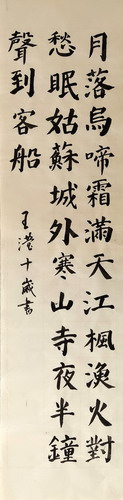 月落烏啼霜滿天江楓漁火對
愁眠姑蘇城外寒山寺夜半鐘
聲到客船
王瀅十歲書